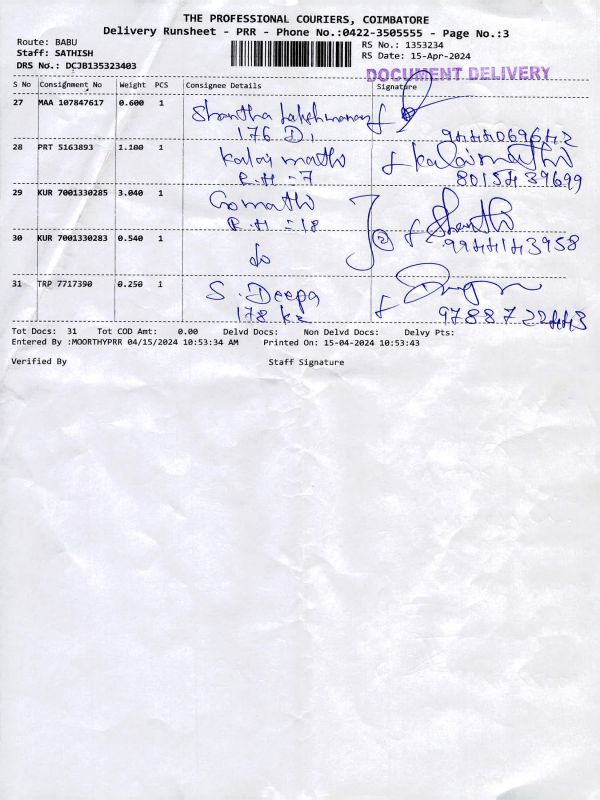 THE PROFESSIONAL COURIERS, COIMBATORE
Delivery Runsheet - PRR - Phone No.:0422-3505555 - Page No.:3
Route: BABU
Staff: SATHISH
DRS No.: DCJB135323403
RS No.: 1353234
RS Date: 15-Apr-2024
DOCUMENT DELIVERY
S No Consignment No Weight PCS Consignee Details Signature
27 MAA 107847617 0.600 1
Shantha Lakshmanan
176 D1
28 PRT 5163893 1.100 1
Kalai mathi
R.H - 7
Kalaimathi
8015439699
29 KUR 7001330285 3.040 1
Gomathi
R.H = 18
2 Shanthi
9944143958
30 KUR 7001330283 0.540 1
do
31 TRP 7717390 0.250 1
S. Deepa
178 K2
9788722443
Tot Docs: 31 Tot COD Amt: 0.00 Delvd Docs: Non Delvd Docs: Delvy Pts:
Entered By :MOORTHYPRR 04/15/2024 10:53:34 AM Printed On: 15-04-2024 10:53:43
Verified By Staff Signature